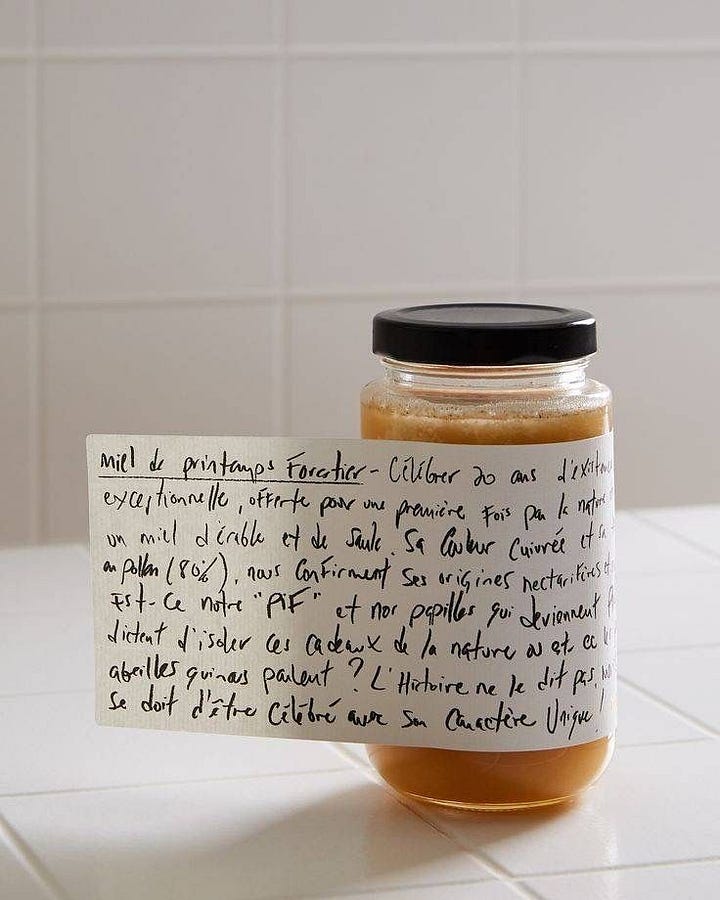 miel de printemps Forestier - Célébrer 20 ans d'existen
exceptionnelle, offerte pour une première fois par la nature
un miel d'érable et de saule. Sa couleur cuivrée et sa
au pollen (80%), nous confirment ses origines nectarifères et
Est-ce notre "PiF" et nos papilles qui deviennent
dictent d'isoler ces cadeaux de la nature ou est-ce
abeilles qui nous parlent? L'Histoire ne le dit pas,
se doit d'être célébré avec son caractère unique!